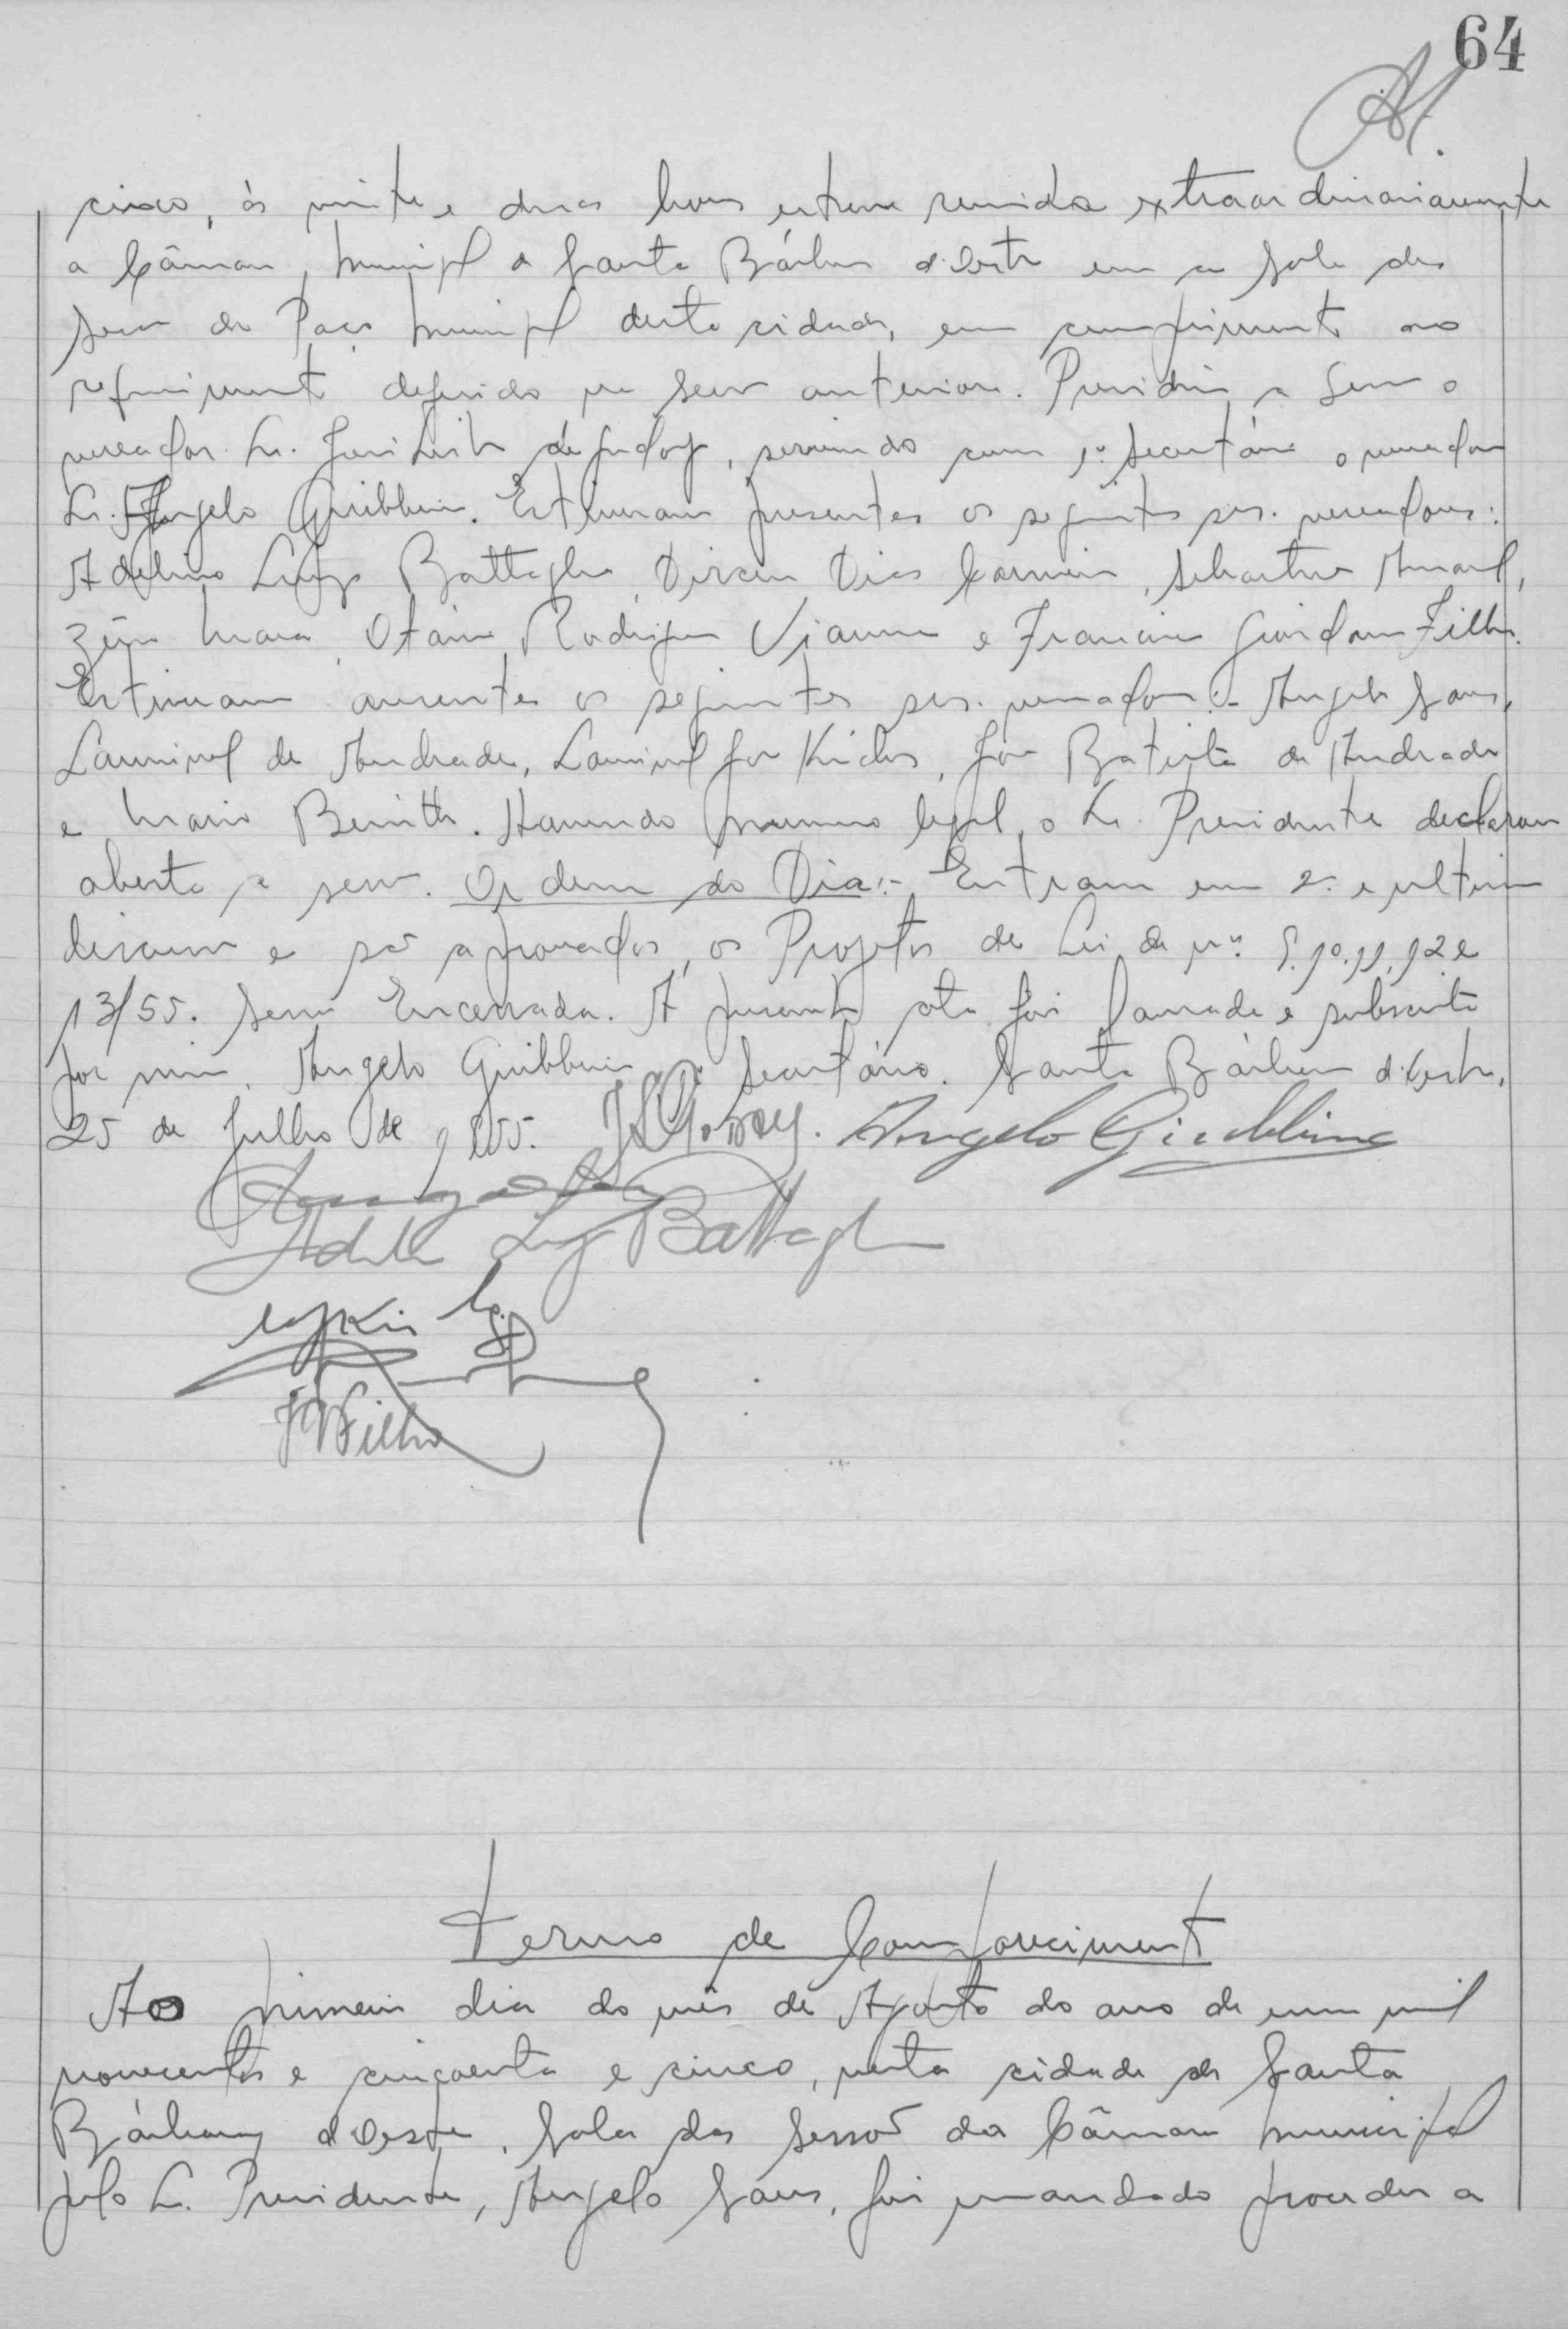 64
cinco, às vinte e duas horas esteve reunida extraordinariamente
a Câmara Municipal de Santa Bárbara d'Oeste em a sala das
sessões do Paço Municipal desta cidade, em cumprimento ao
requerimento deferido na sessão anterior. Presidiu a sessão o
vereador Sr. José Leite de Godoy, servindo como 1º secretário o vereador
Sr. Angelo Giubbina. Estiveram presentes os seguintes srs. vereadores:
Adelino Luiz Battaglia, Dirceu Dias Carneiro, Sebastião Amaral,
Maia, Otávio Rodrigues Vianna e Francisco Filho.
Estiveram ausentes os seguintes srs. vereadores:- Angelo Sans,
Laurival de Andrade, Batista de Andrade
e Mario. Havendo numero legal, o Sr. Presidente declarou
aberta a sessão. Ordem do Dia:- Entram em 2ª e ultima
discussão e são aprovados, os Projetos de Lei de nºs 9, 10, 11, 12 e
13/55. Sessão Encerrada. A presente ata foi lavrada e subscrita
por mim, Angelo Giubbina 1º Secretário. Santa Bárbara d'Oeste,
25 de Julho de 1955. JLGodoy. Angelo Giubbina
Adelino Luiz Battaglia
Filho
Termo de Comparecimento
Ao primeiro dia do mês de Agosto do ano de um mil
novecentos e cinqoenta e cinco, nesta cidade de Santa
Bárbara d'Oeste, Sala das Sessões da Câmara Municipal
pelo Sr. Presidente, Angelo Sans, foi mandado proceder a